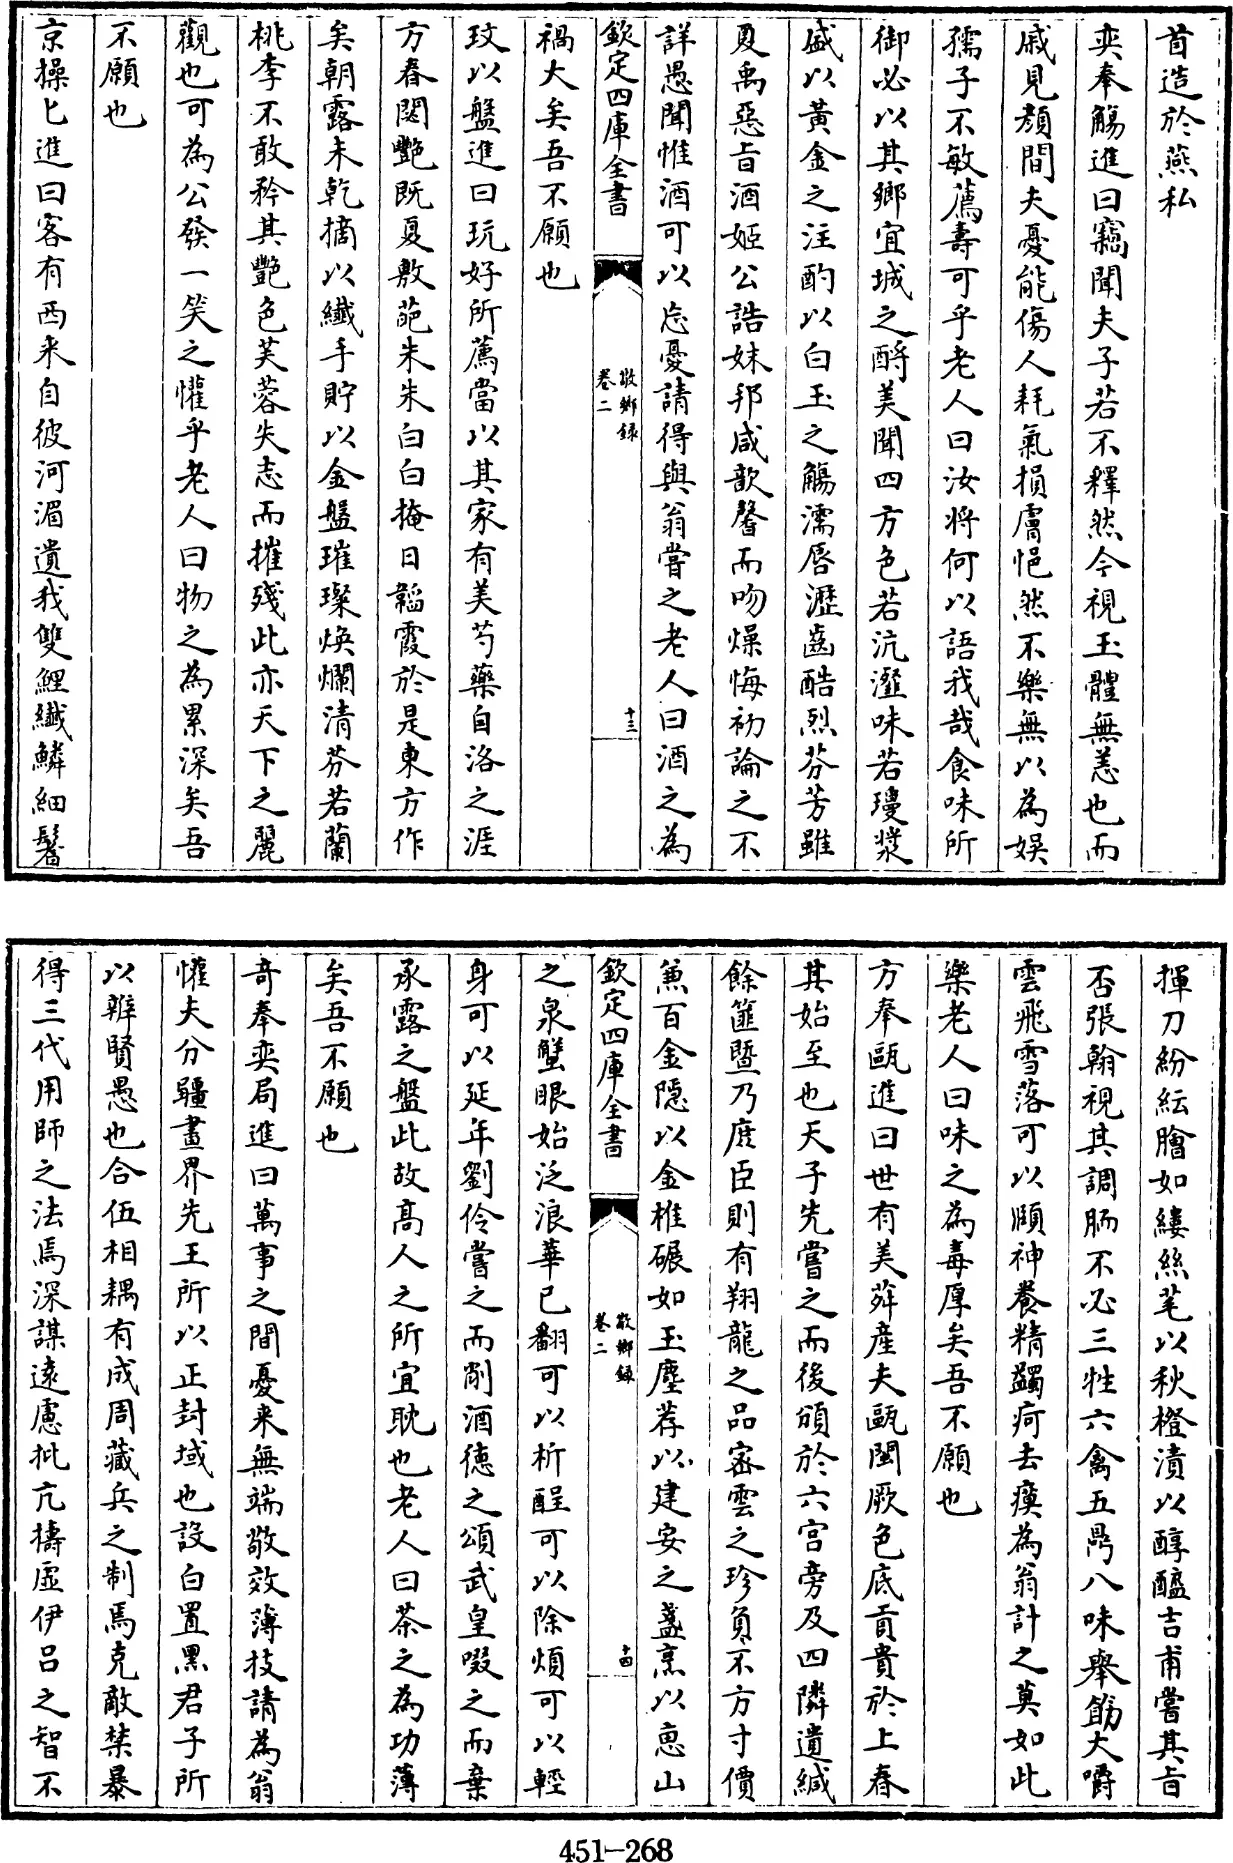 首造於燕私
奕奉觴進曰竊聞夫子若不釋然今視玉體無恙也而
戚見顏間夫憂能傷人耗氣損膚悒然不樂無以為娛
孺子不敏薦壽可乎老人曰汝將何以語我哉食味所
御必以其鄉宜城之酹美聞四方色若沆瀣味若瓊漿
盛以黃金之注酌以白玉之觴濡唇瀝齒酷烈芬芳雖
夏禹惡旨酒姬公誥妹邦咸歆馨而吻燥悔初論之不
詳愚聞惟酒可以忘憂請得與翁嘗之老人曰酒之為
欽定四庫全書
敬鄉録
卷二
十三
禍大矣吾不願也
玟以盤進曰玩好所薦當以其家有美芍藥自洛之涯
方春閟艷既夏敷葩朱朱白白掩日韜霞於是東方作
矣朝露未乾摘以纖手貯以金盤璀璨煥爛清芬若蘭
桃李不敢矜其艷色芙蓉失志而摧殘此亦天下之麗
觀也可為公發一笑之懽乎老人曰物之為累深矣吾
不願也
京操匕進曰客有西來自彼河湄遺我雙鯉纖鱗細鬐
揮刀紛紜膾如縷絲芼以秋橙漬以醇醯吉甫嘗其旨
否張翰視其調胹不必三牲六禽五鼎八味舉筯大嚼
雲飛雪落可以頤神養精蠲疴去瘼為翁計之莫如此
樂老人曰味之為毒厚矣吾不願也
方奉甌進曰世有美荈產夫甌閩厥色底貢貴於上春
其始至也天子先嘗之而後頒於六宮旁及四隣遺緘
餘篚暨乃庶臣則有翔龍之品密雲之珍負不方寸價
兼百金隱以金椎碾如玉塵荐以建安之盞烹以惠山
欽定四庫全書
敬鄉録
卷二
十四
之泉蟹眼始泛浪華已翻可以析酲可以除煩可以輕
身可以延年劉伶嘗之而削酒德之頌武皇啜之而棄
承露之盤此故高人之所宜耽也老人曰茶之為功薄
矣吾不願也
奇奉奕局進曰萬事之間憂來無端敬效薄技請為翁
懽夫分疆畫界先王所以正封域也設白置黑君子所
以辨賢愚也合伍相耦有成周藏兵之制焉克敵禁暴
得三代用師之法焉深謀遠慮批亢擣虛伊呂之智不
451-268